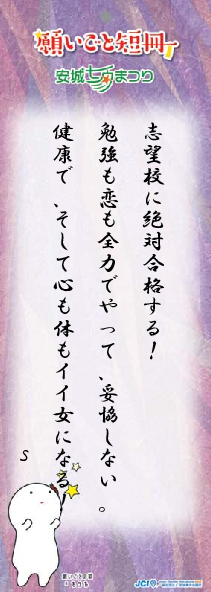 願いごと短冊
安城七夕まつり
志望校に絶対合格する！
勉強も恋も全力でやって、妥協しない。
健康で、そして心も体もイイ女になる。
S
JCI